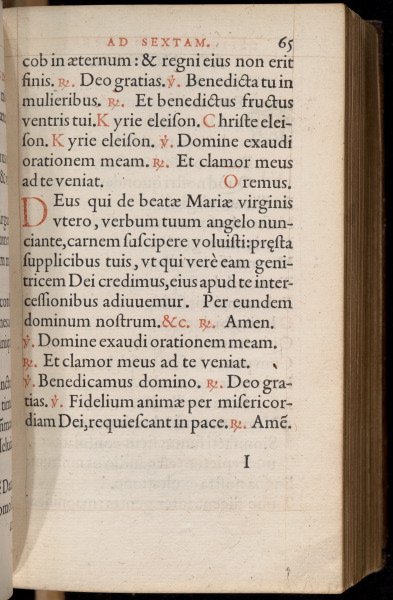 AD SEXTAM. 65
cob in æternum : & regni eius non erit
finis. ℟. Deo gratias. ℣. Benedicta tu in
mulieribus. ℟. Et benedictus fructus
ventris tui. Kyrie eleiſon. Chriſte elei-
ſon. Kyrie eleiſon. ℣. Domine exaudi
orationem meam. ℟. Et clamor meus
ad te veniat. Oremus.
DEus qui de beatæ Mariæ virginis
vtero, verbum tuum angelo nun-
ciante, carnem ſuſcipere voluiſti: pręſta
ſupplicibus tuis, vt qui verè eam geni-
tricem Dei credimus, eius apud te inter-
ceſſionibus adiuuemur. Per eundem
dominum noſtrum. &c. ℟. Amen.
℣. Domine exaudi orationem meam.
℟. Et clamor meus ad te veniat.
℣. Benedicamus domino. ℟. Deo gra-
tias. ℣. Fidelium animæ per miſericor-
diam Dei, requieſcant in pace. ℟. Amẽ.
I